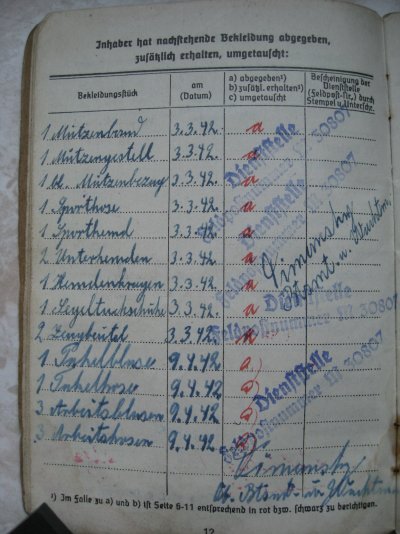 Inhaber hat nachstehende Bekleidung abgegeben,
zusätzlich erhalten, umgetauscht:
Bekleidungsstück
am
(Datum)
a) abgegeben¹)
b) zusätzl. erhalten¹)
c) umgetauscht
Bescheinigung der
Dienststelle
(Feldpost-Nr.) durch
Stempel u. Unterschr.
1 Mützenband 3.3.42. a
1 Mützengestell 3.3.42. a
1 bl. Mützenbezug 3.3.42. a
1 Sporthose 3.3.42. a
1 Sporthemd 3.3.42. a
2 Unterhemden 3.3.42. a
1 Hemdenkragen 3.3.42. a
1 Segeltuchschuhe 3.3.42. a
2 Zeugbeutel 3.3.42. a
1 Takelbluse 9.4.42 a)
1 Takelhose 9.4.42 a)
3 Arbeitsblusen 9.4.42 a)
3 Arbeitshosen 9.4.42 a)
Dienststelle
Feldpostnummer M 30807
Dienststelle
Feldpostnummer M 30807
Dienststelle
Feldpostnummer M 30807
Dienststelle
Feldpostnummer M 30807
¹) Im Falle zu a) und b) ist Seite 6-11 entsprechend in rot bzw. schwarz zu berichtigen.
12